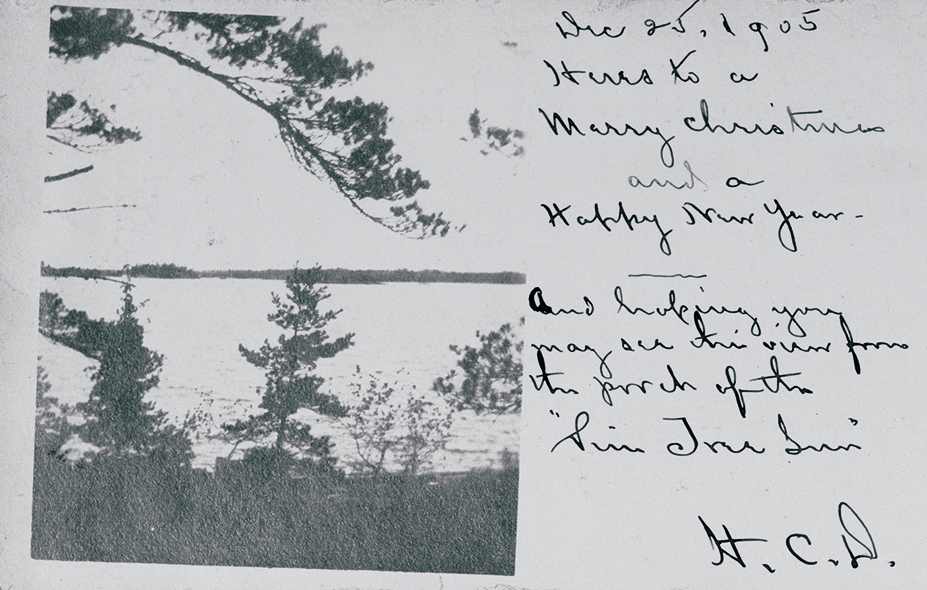 Dec 25, 1905
Heres to a
Merry Christmas
and a
Happy New Year -
and hoping you
may see this view from
the porch of the
"Pine Tree Inn"
H. C. D.